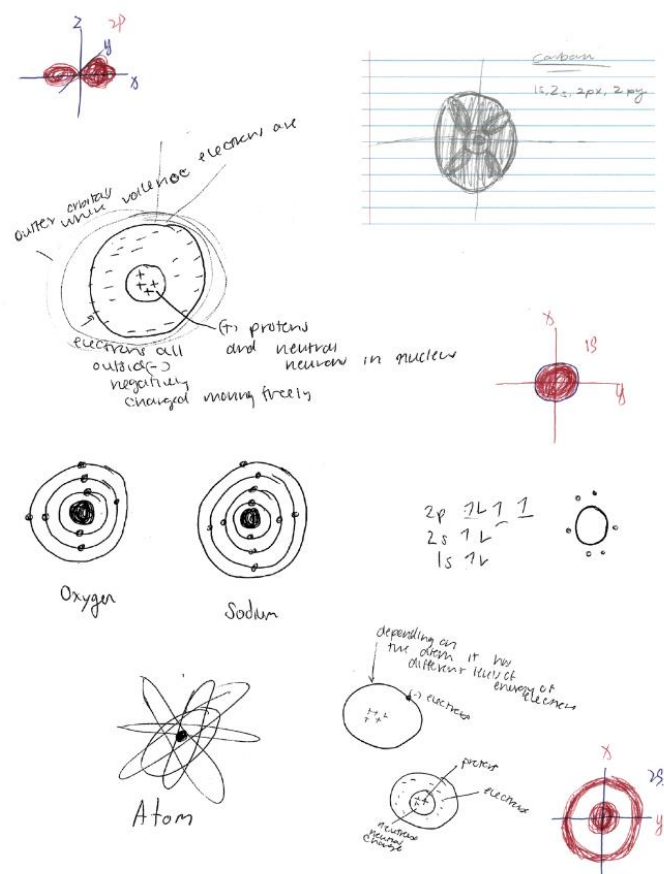 z 2p
y
x
Carbon
1s, 2s, 2px, 2py
outer orbital
where valence electrons are
+ +
+ + +
(+) protons
and neutral
neutrons in nucleus
electrons all
outside(-)
negatively
charged moving freely
x
1s
y
Oxygen
Sodium
2p 1L 1 1
2s 1L
1s 1L
depending on
the atom it has
different levels of
energy of
electrons
(-) electrons
+ + +
+ +
Atom
proton
electrons
+ +
neutrons
neutral
charge
x
2s
y